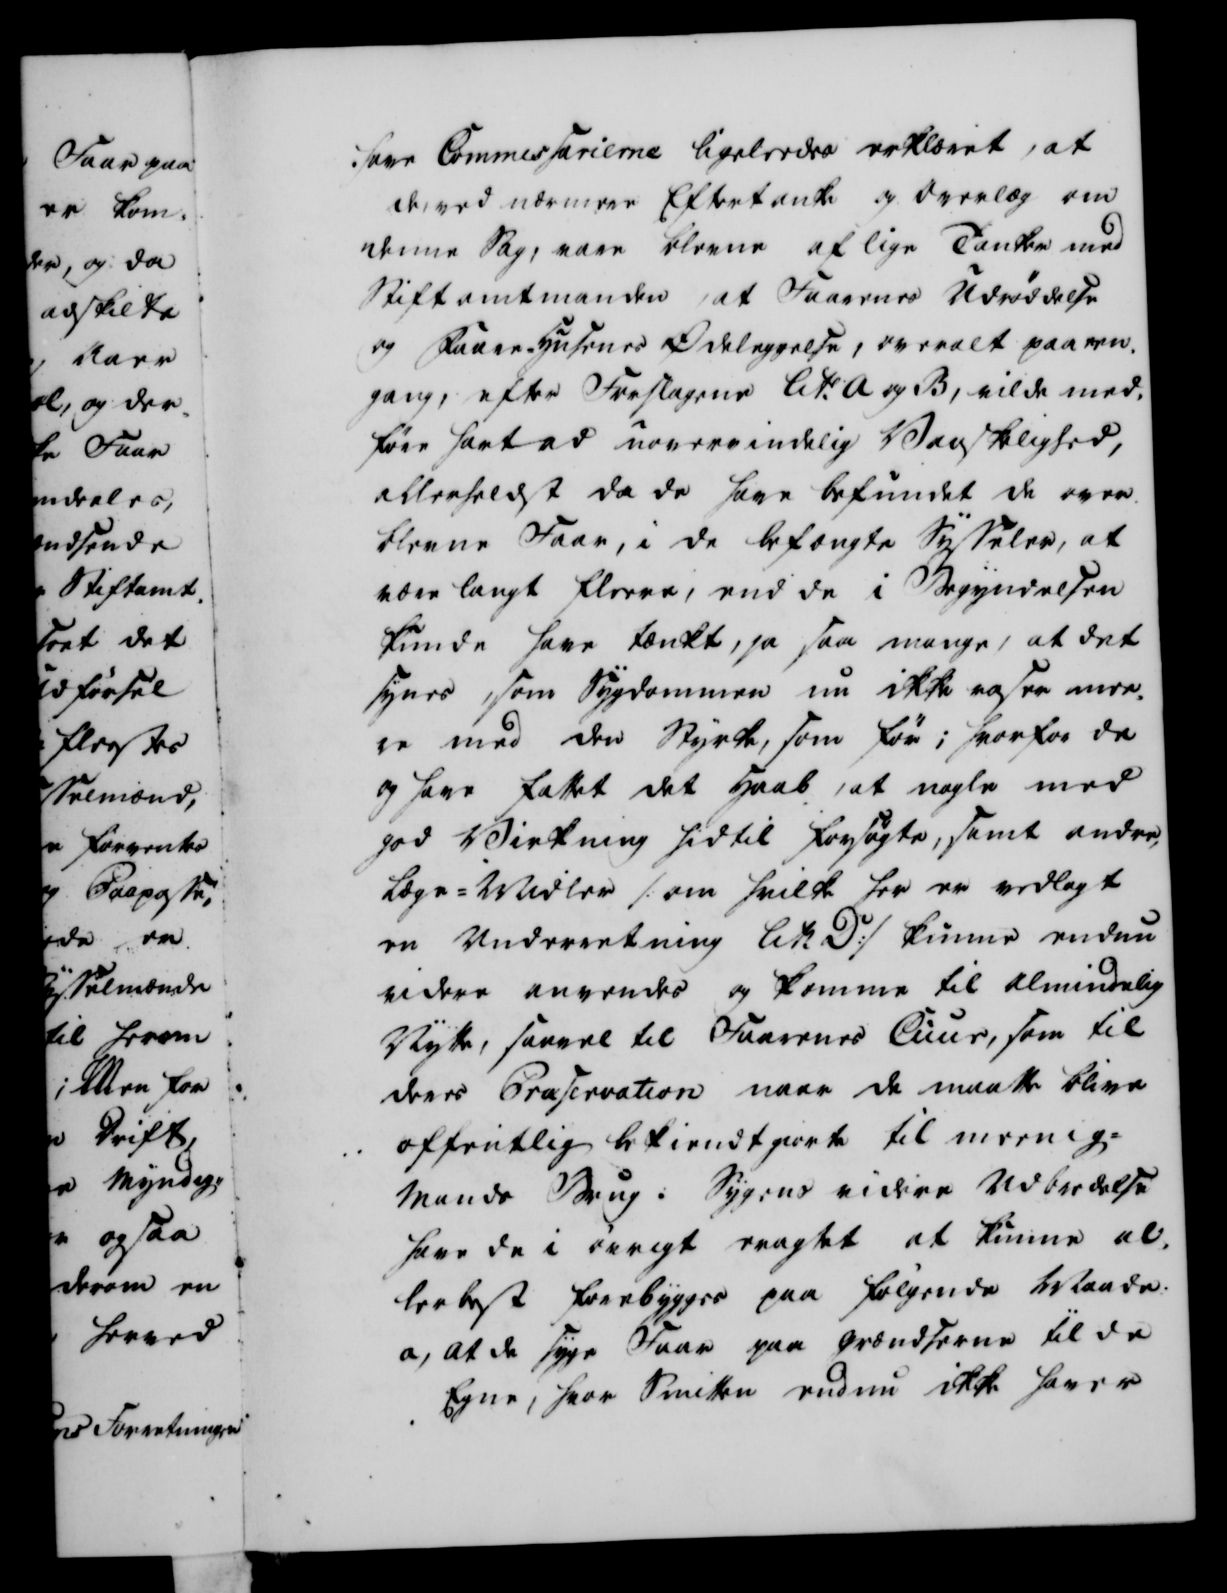 Faar paa
er kom¬
der, og da
adskilte
Naar
og der¬
ke Faar
mdeeles,
ændsende
Stiftamt¬
det
udførsel
fleestes
sselmænd,
forventes
og Paapasse¬
ede en
Sÿsselmænde
til herom
; Men for
Drift,
Myndig¬
ogsaa
derom en
herved
Forretninger
have Commissarierne ligeleedes erklæret, at
de, ved nærmere Eftertanke og Overlæg om
denne Sag, vare blevne af lige Tanker med
Stiftamtmanden, at Faarenes Udröddelse
og Faare-Husenes Ödeleggelse, overalt paa een¬
gang, efter Forslagene Litr. A og B, vilde med¬
före hart ad uovervindelig Vanskelighed,
allerheldst da de have befundet de over¬
blevne Faar, i de befængte Sÿsseler, at
være langt fleere, end de i Begyndelsen
kunde have tænkt, ja saa mange, at det
synes, som Sÿgdommen nu ikke raser mee¬
re med den Styrke, som för; hvorfor de
og have fattet det Haab, at nogle med
god Virkning hidtil forsögte, samt andre,
Læge=Midler /: om hvilke her er vedlagt
en Underretning Litr. D :/ kunne endnu
videre anvendes og komme til almindelig
Nytte, saavel til Faarenes Cuur, som til
deres Præservation naar de maatte blive
offentlig bekiendtgiorte til meenig=
Mands Brug. Sygens videre Udbredelse
have de i övrigt eragtet at kunne al¬
lerbest forebÿgges paa fölgende Maade:
a, at de syge Faar paa Grændserne til de
Egne, hvor Smitten endnu ikke haver